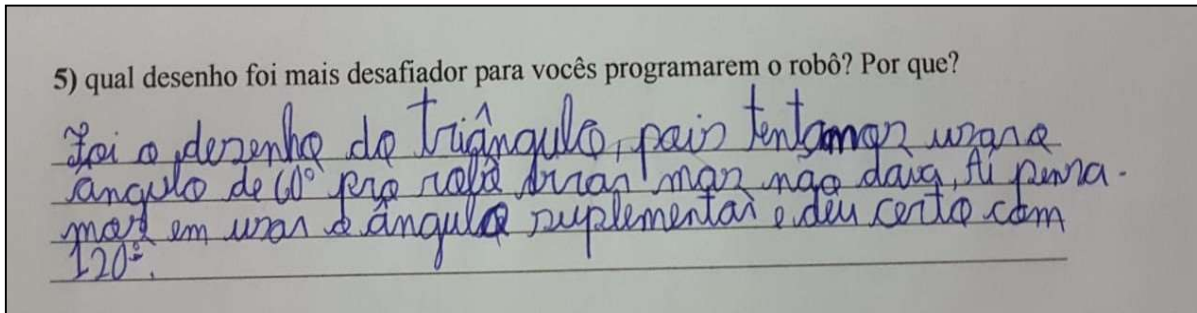 5) qual desenho foi mais desafiador para vocês programarem o robô? Por que?
Foi o desenho do triângulo, pois tentamos usar o
ângulo de 60° pro robô virar mas não dava, Aí pensa-
mos em usar o ângulo suplementar e deu certo com
120°.